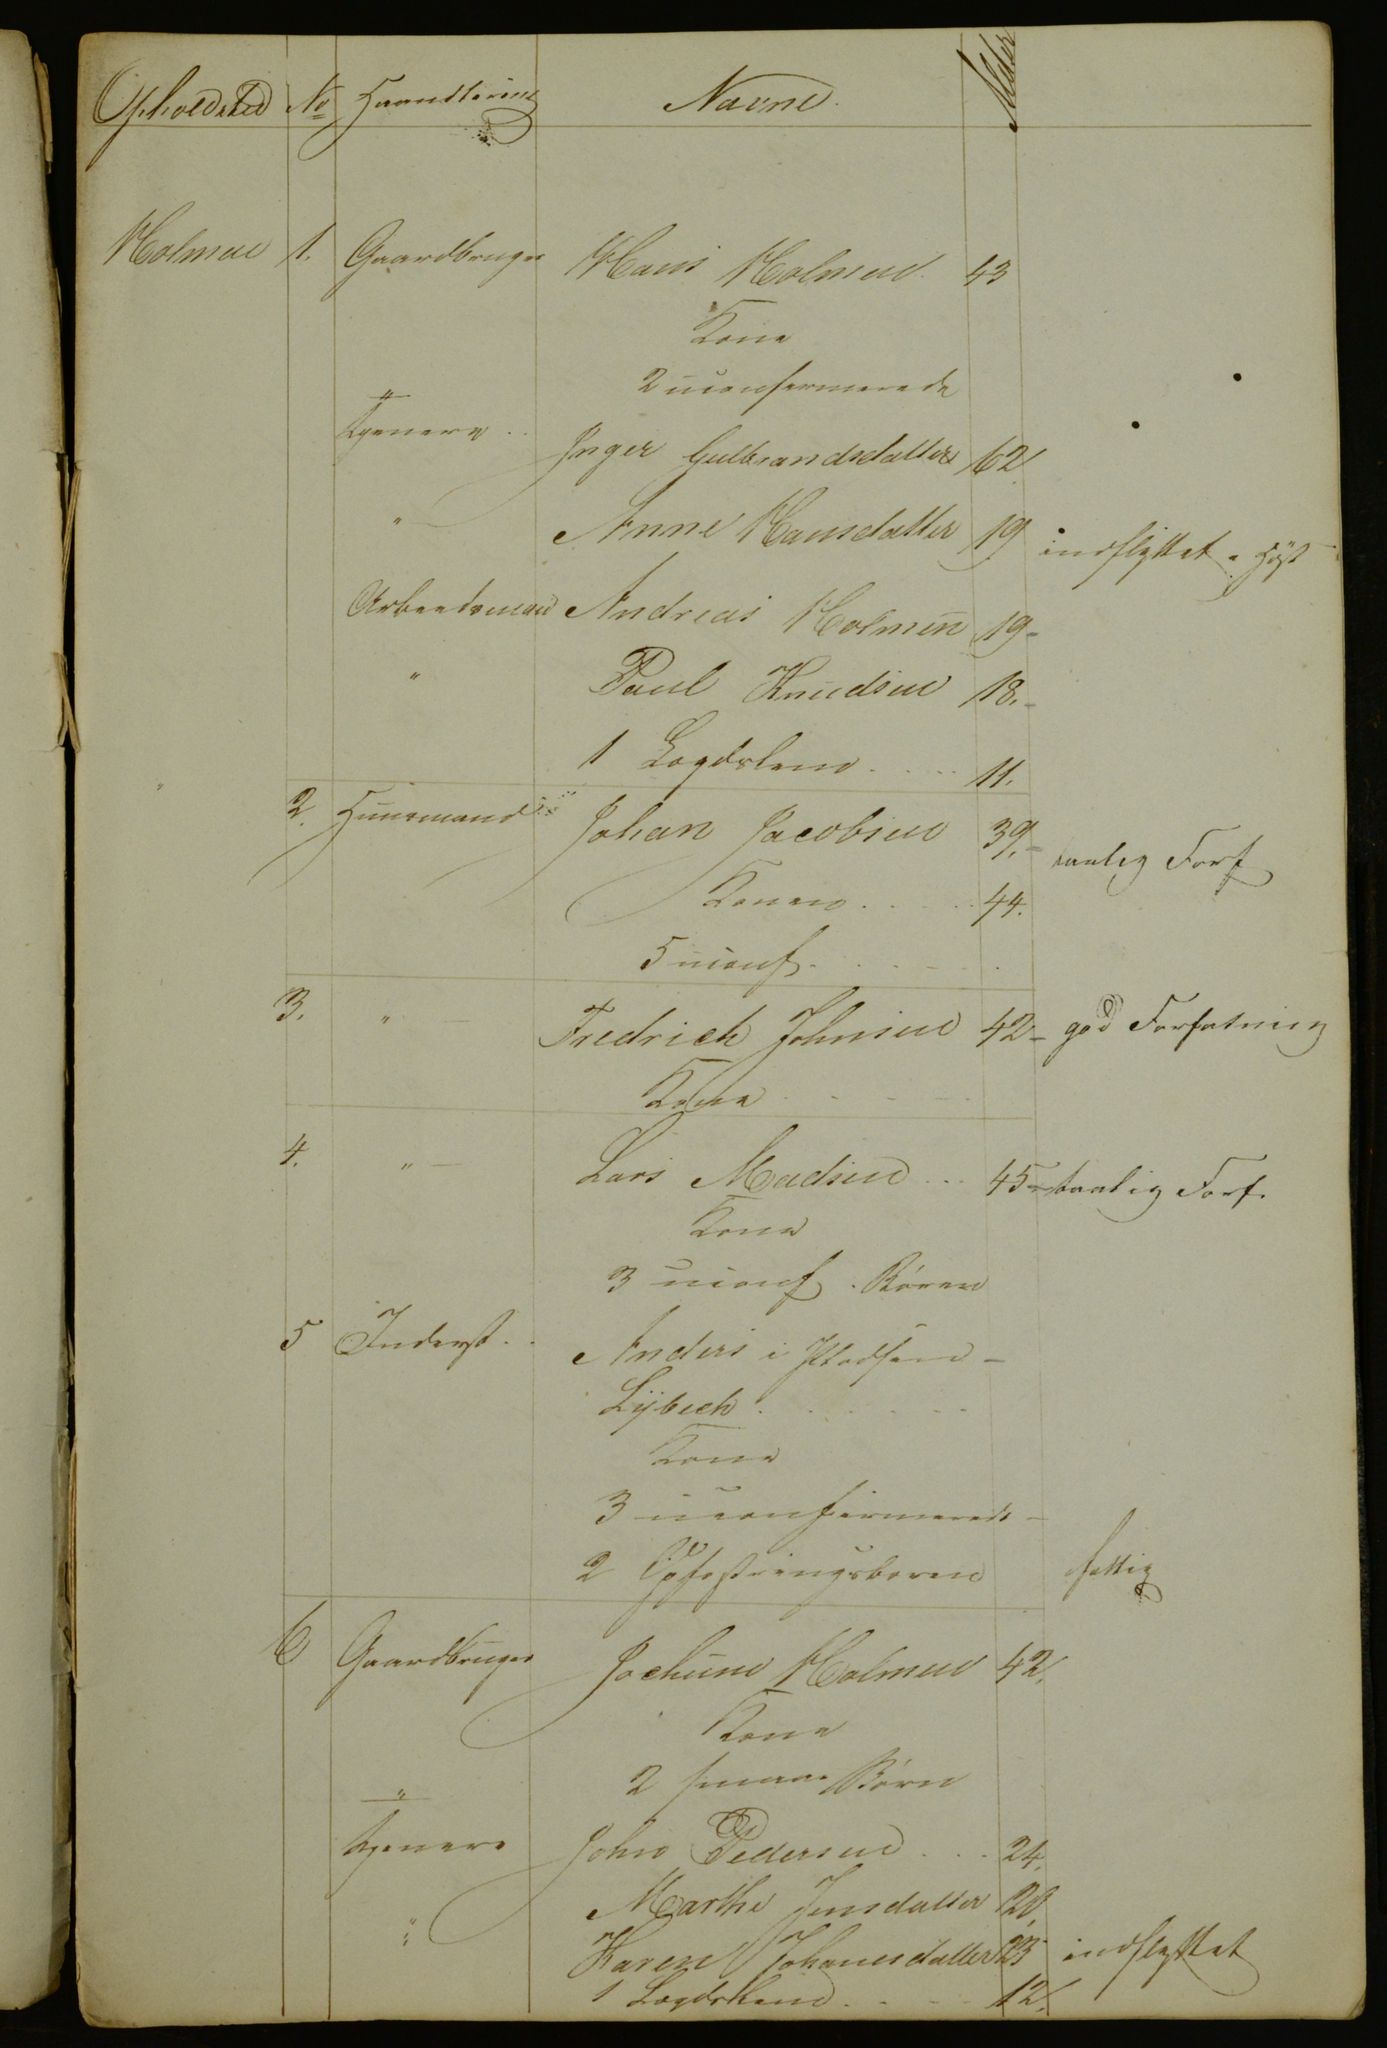 Opholdsted No Haandtering Navne Alder
Holmen 1. Gaardbruger Hans Holmen 43
Kone
2 uconfermerede
Tjenere .. Inger Gulbrandsdatter 62
" Anne Hansdatter 19 indflyttet. Høst
Arbeidsmand Andreas Holmen 19-
" Paul Knudsen 18.-
1 Lægdslem .... 11.
2. Huusmand Johan Jacobsen 39.- taalig Forf
Konen .... 44.
5 uconf. . . .
3. " Fredrich Johnsen 42- god Forfatning
Kone
4. " - Lars Madsen ... 45- taalig Forf.
Kone
3 uconf. Børen
5 Inderst .. Anders i
Lÿbech . . . . .
Kone
3 uconfirmerede -
2 Opfostringsboren fattig
6 Gaardbruger Jochum Holmen 42.
Kone
2 smaae Børn
"
Tjenere John Pedersen ... 24.
" Marthe Jensdatter 20.
Karen Johanesdatter 23 indflyttet
1 Lægdslem .... 12.